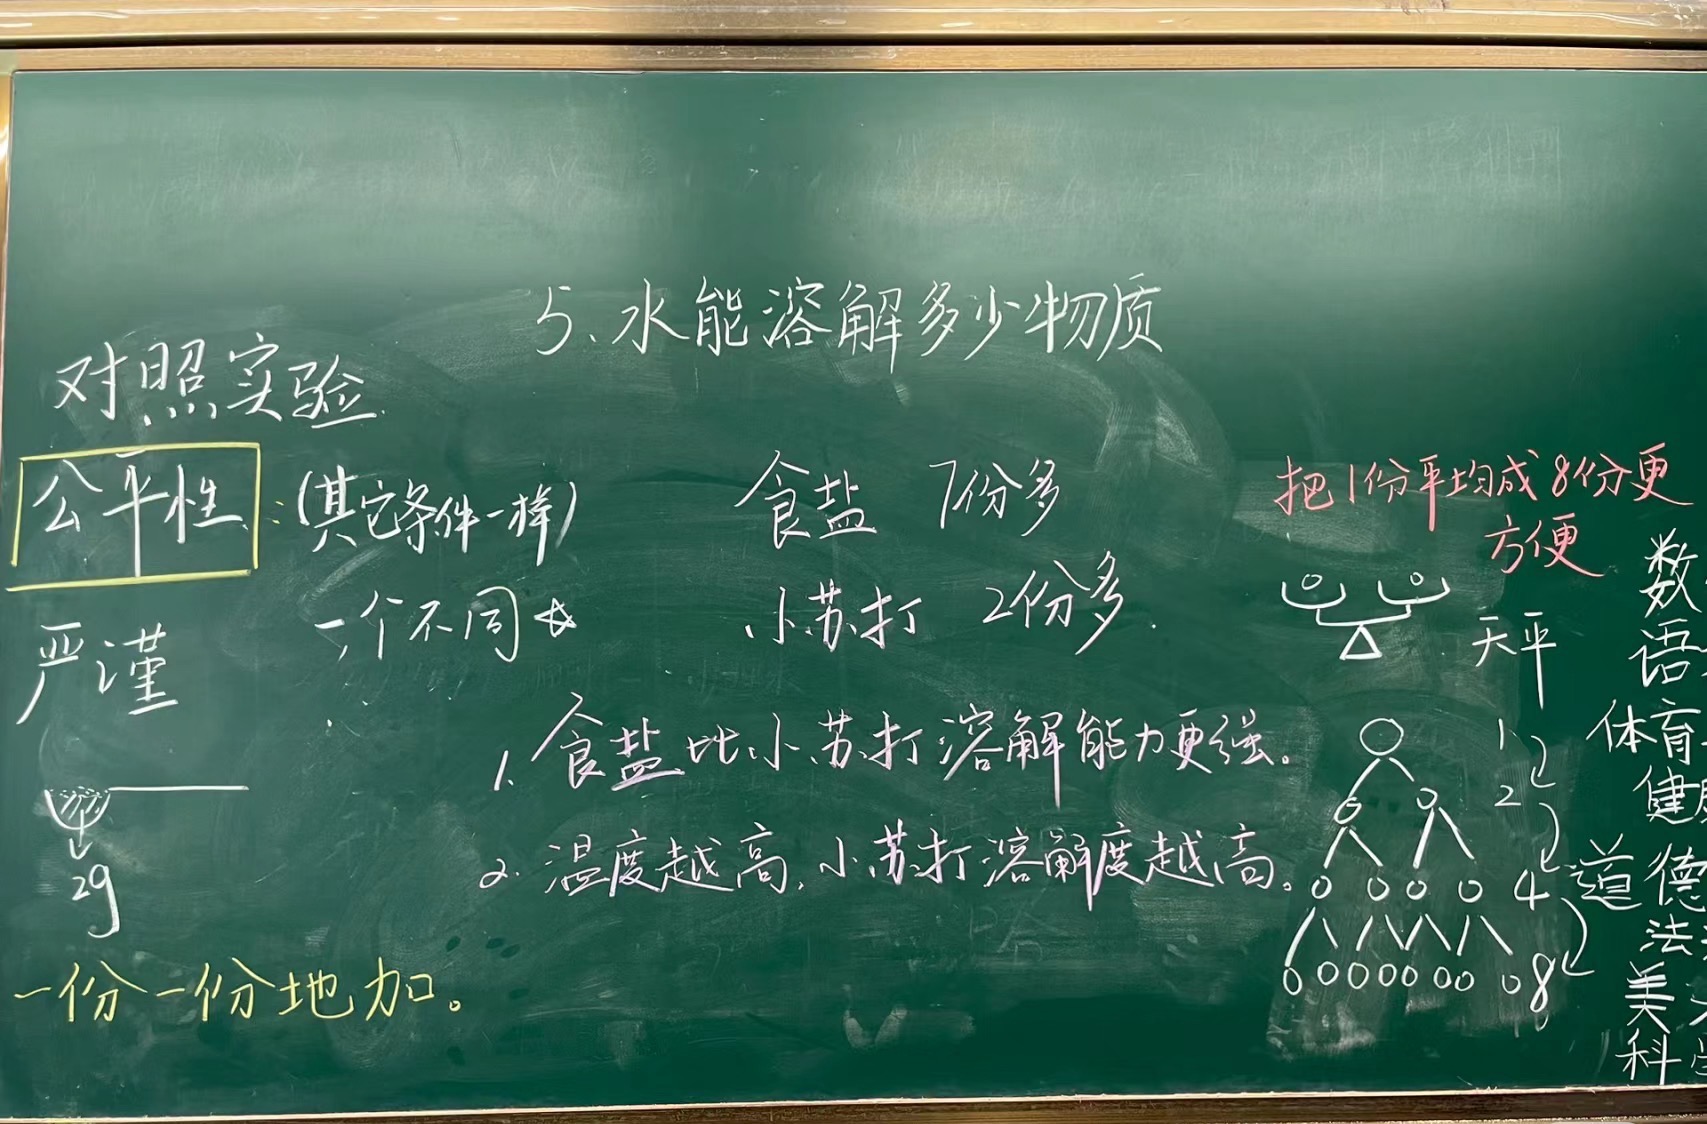 5.水能溶解多少物质
对照实验
公平性:(其它条件一样)
一个不同
严谨
2g
一份一份地加。
食盐 7份多
小苏打 2份多.
1.食盐比小苏打溶解能力更强。
2.温度越高,小苏打溶解度越高。
把1份平均成8份更
方便
天平
1
2
4
8
数
语
体育
健
道德
法
美
科